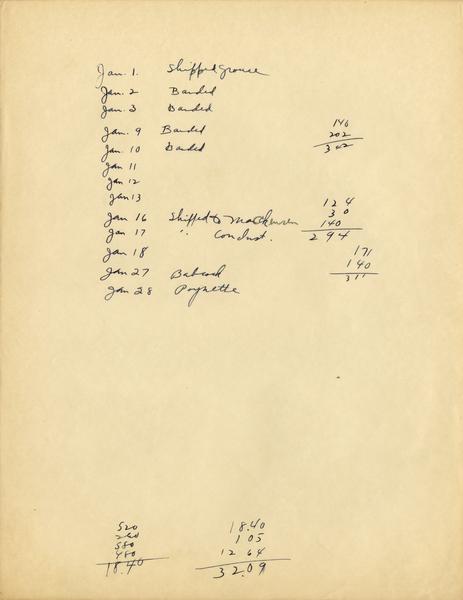 Jan. 1. Shipped grouse
Jan. 2 Banded
Jan. 3 Banded
146
Jan. 9 Banded 202
Jan. 10 Banded 342
Jan 11
Jan 12
Jan 13 124
30
Jan 16 Shipped to Mackensen 140
Jan 17 " Condust. 294
Jan 18 171
140
Jan 27 Babcock 311
Jan 28 Poynette
520 18.40
260 1 05
580 12 64
480
18.40 32.09